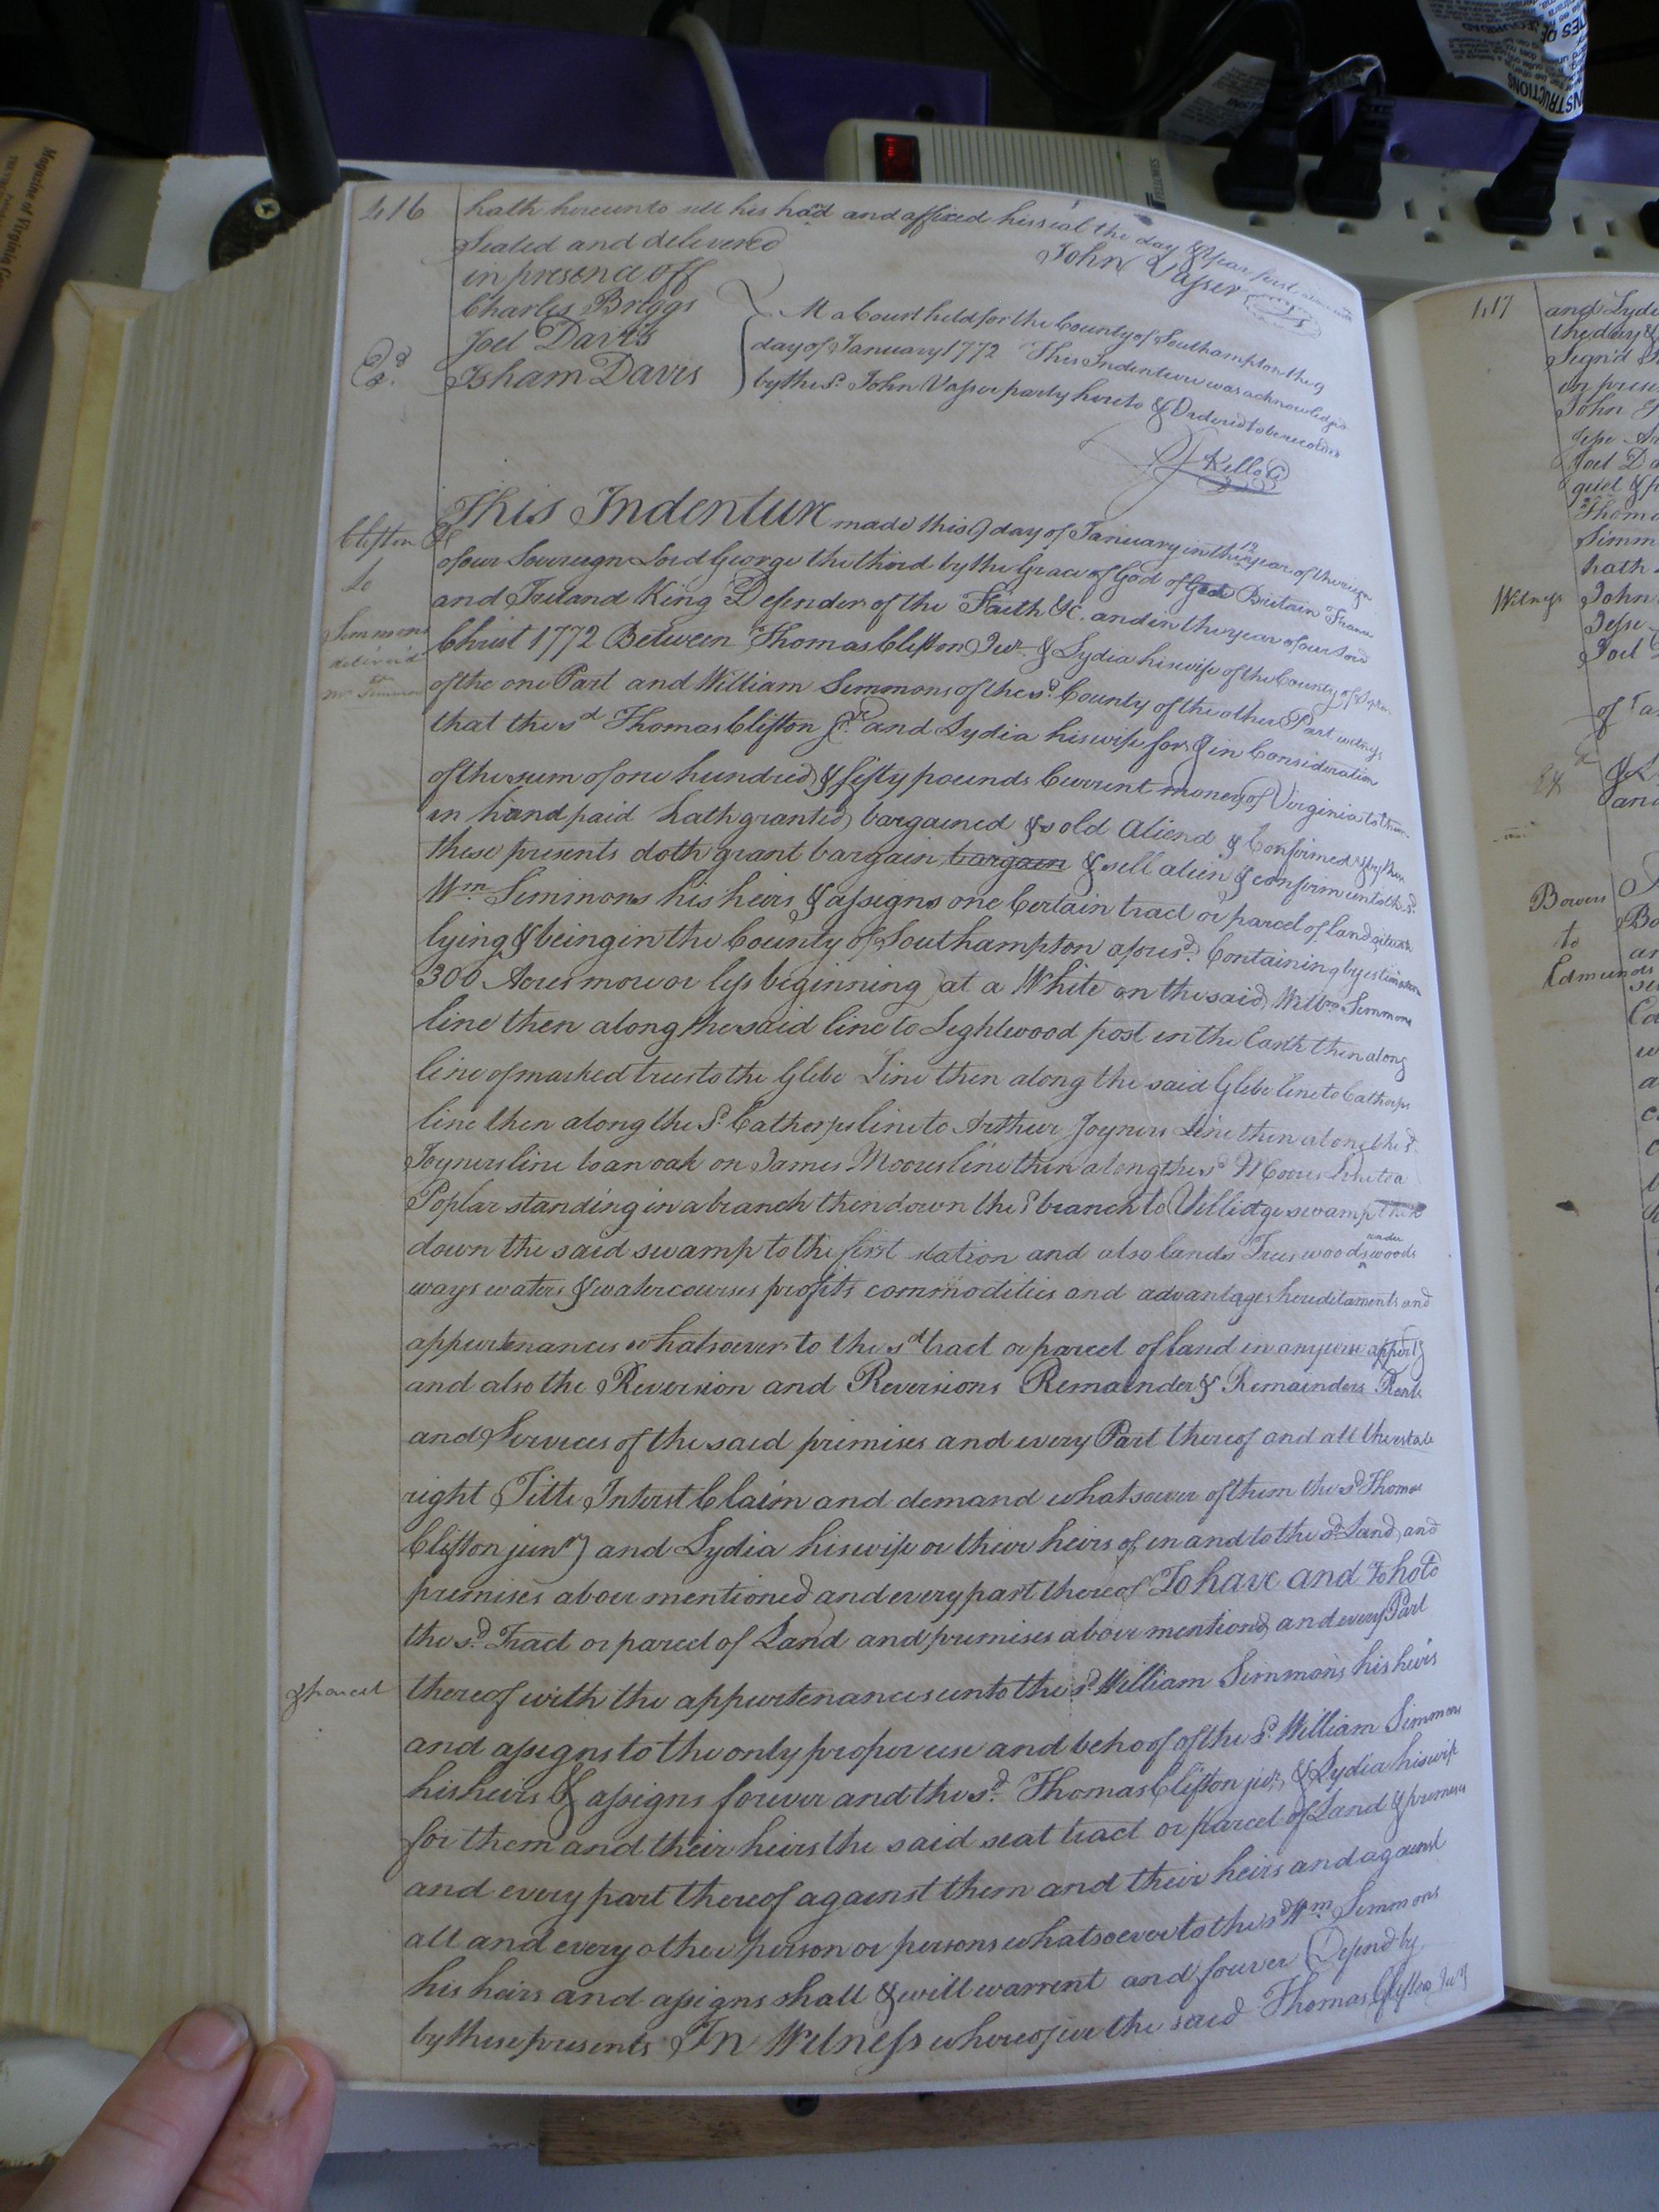 416
hath hereunto sett his hand and affixed his seal the day & year first
Sealed and delivered
in presence off
Charles Briggs
Joel Davis
Isham Davis
Exd
John Vasser
At a Court held for the County of Southampton the 9
day of January 1772 This Indenture was acknowledged
by the sd. John Vasser party hereto & Ordered to be recorded
Kello C
Clifton
to
Simmons
deliver'd
to
Mr Simmons
This Indenture made this 9 day of January in the 12 year of the reign
of our Sovereign Lord George the third by the Grace of God of Britain France
and Ireland King Defender of the Faith &c. and in the year of our Lord
Christ 1772 Between Thomas Clifton Junr & Lydia his wife of the County of
of the one Part and William Simmons of the sd. County of the other Part witness
that the sd Thomas Clifton Jr. and Lydia his wife for & in Consideration
of the sum of one hundred & fifty pounds Current money of Virginia to them
in hand paid hath granted bargained & sold Aliend & Confirmed & by these
these presents doth grant bargain bargain & sell alien & confirm unto the sd.
Wm. Simmons his heirs & assigns one Certain tract or parcel of land situate
lying & being in the County of Southampton aforesd. Containing by estimation
300 Acres more or less beginning at a White on the said Willm Simmons
line then along the said line to Lightwood post in the Earth then along
line of marked trees to the Glebe Line then along the said Glebe line to Cathorps
line then along the Sd. Cathorps line to Arthur Joyners Line then along the sd.
Joyners line to an oak on James Moores line then along the sd Moores Line to a
Poplar standing in a branch then down the sd branch to Village swamp then
down the said swamp to the first station and also lands Trees woods under woods
ways waters & water courses profits commodities and advantages hereditaments and
appurtenances whatsoever to the sd tract or parcel of land in anywise
and also the Reversion and Reversions Remainder & Remainders Rents
and Services of the said premises and every Part thereof and all the estate
right Title Interst Claim and demand whatsoever of them the sd Thomas
Clifton junr) and Lydia his wife or their heirs of in and to the sd Land and
premises above mentioned and every part thereof To have and to hold
the sd. Tract or parcel of Land and premises above mentiond and every Part
thereof with the appurtenances unto the sd William Simmons his heirs
and assigns to the only proper use and behoof of the Sd William Simmons
his heirs & assigns forever and the sd. Thomas Clifton jur. & Lydia his wife
for them and their heirs the said seat tract or parcel of Land & premises
and every part thereof against them and their heirs and against
all and every other person or persons whatsoever to the sd Wm. Simmons
his heirs and assigns shall & will warrent and forever Defend by
by these presents In Witness whereof we the said Thomas Clifton Junr
417
the day &
Sign'd
in prese
John
Joel Da
Simm
hath
Witness
John
Jesse
Joel
of
Bowers
to
Edmunds
Magazine of Virginia
FELLOWES
INSTRUCTIONS